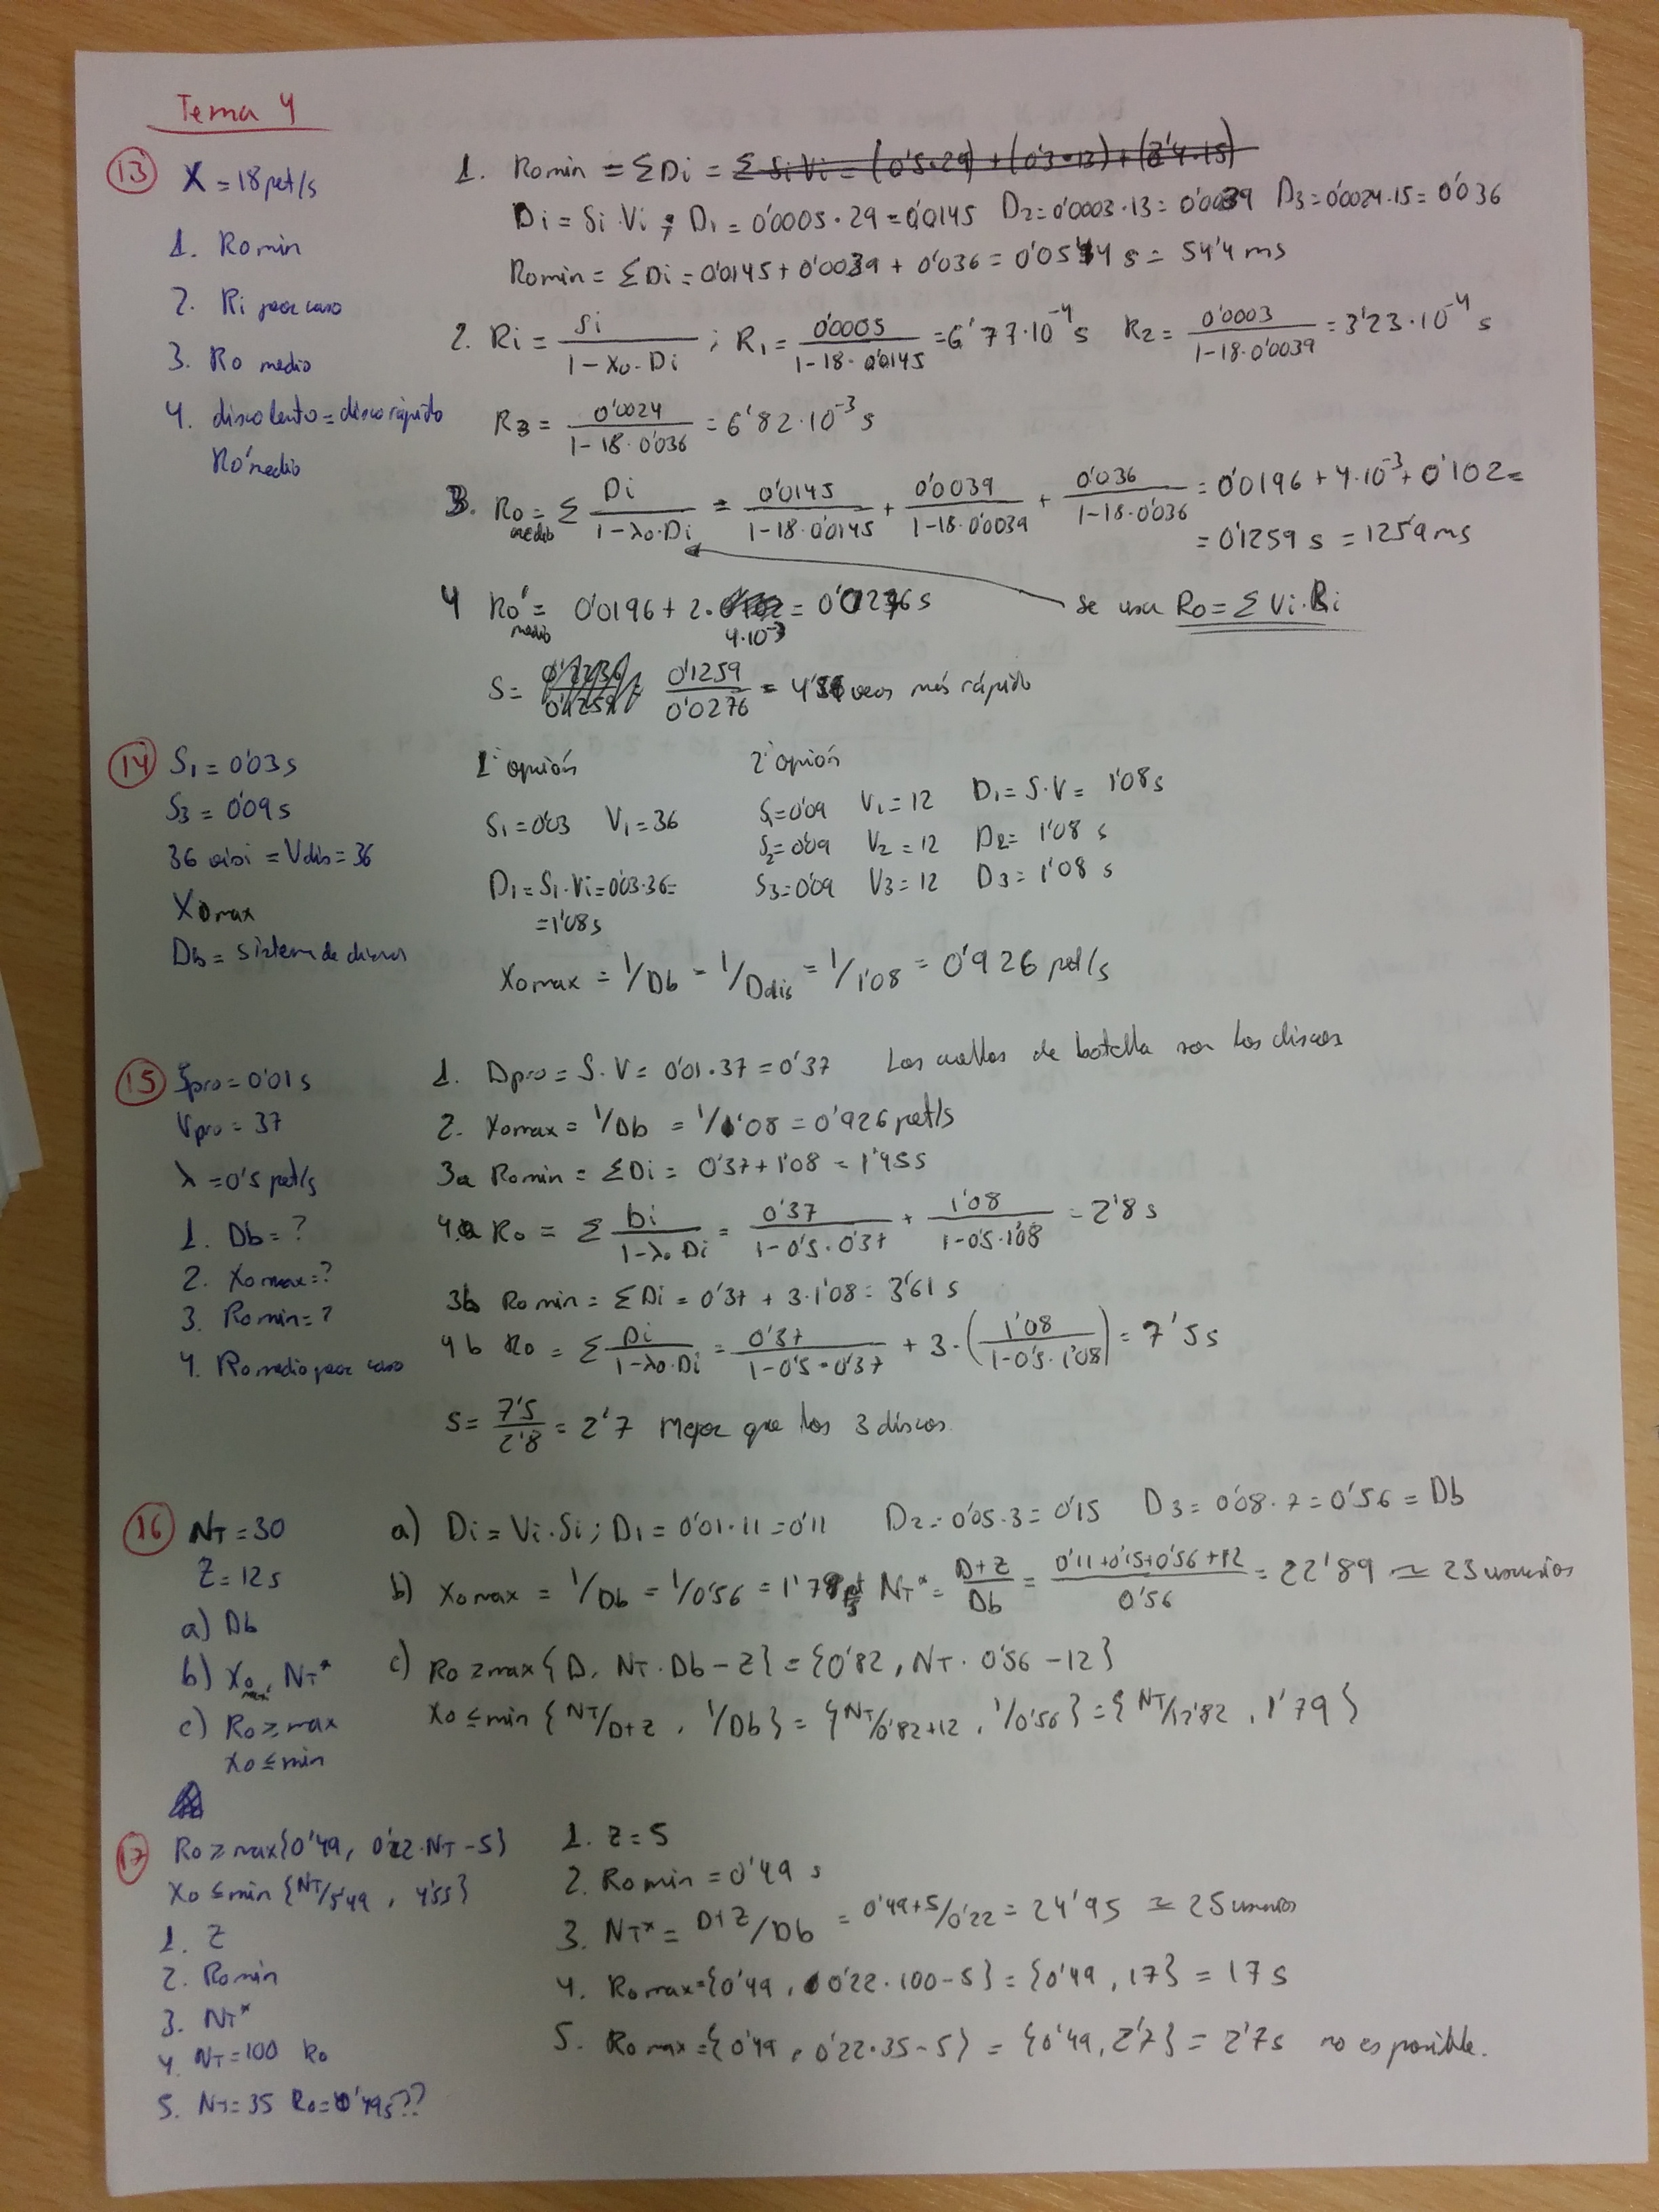 Tema 4
13 X = 18 pet/s
1. Romin
2. Ri peor caso
3. Ro medio
4. disco lento = disco rápido
Ro' medio
1. Romin = ΣDi = Σ Si Vi = (0'5·29) + (0'3·13) + (2'4·15)
Di = Si·Vi ; D1 = 0'0005·29 = 0'0145 D2 = 0'0003·13 = 0'0039 D3 = 0'0024·15 = 0'036
Romin = ΣDi = 0'0145 + 0'0039 + 0'036 = 0'0544 s = 54'4 ms
2. Ri = Si / (1 - X0·Di) ; R1 = 0'0005 / (1-18·0'0145) = 6'77·10^-4 s R2 = 0'0003 / (1-18·0'0039) = 3'23·10^-4 s
R3 = 0'0024 / (1-18·0'036) = 6'82·10^-3 s
3. Ro medio = Σ Di / (1-λ0·Di) = 0'0145 / (1-18·0'0145) + 0'0039 / (1-18·0'0039) + 0'036 / (1-18·0'036) = 0'0196 + 4·10^-3 + 0'102 =
= 0'1259 s = 125'9 ms
4 Ro' medio = 0'0196 + 2· 4·10^-3 = 0'0276 s
se usa Ro = Σ Vi·Ri
S = 0'1259 / 0'0276 = 4'56 veces más rápido
14 S1 = 0'03 s
S3 = 0'09 s
36 visi = Vdis = 36
X0max
Db = sistema de discos
1ª opción
S1 = 0'03 V1 = 36
D1 = S1·Vi = 0'03·36 =
= 1'08 s
2ª opción
S1 = 0'09 V1 = 12 D1 = S·V = 1'08 s
S2 = 0'09 V2 = 12 D2 = 1'08 s
S3 = 0'09 V3 = 12 D3 = 1'08 s
X0max = 1/Db = 1/Ddis = 1/1'08 = 0'926 pet/s
15 Spro = 0'01 s
Vpro = 37
λ = 0'5 pet/s
1. Db = ?
2. X0max = ?
3. Romin = ?
4. Ro medio peor caso
1. Dpro = S·V = 0'01·37 = 0'37 Los cuellos de botella son los discos
2. X0max = 1/Db = 1/1'08 = 0'926 pet/s
3a Romin = ΣDi = 0'37 + 1'08 = 1'45 s
4.a Ro = Σ Di / (1-λ0·Di) = 0'37 / (1-0'5·0'37) + 1'08 / (1-0'5·1'08) = 2'8 s
3b Romin = ΣDi = 0'37 + 3·1'08 = 3'61 s
4b Ro = Σ Di / (1-λ0·Di) = 0'37 / (1-0'5·0'37) + 3·(1'08 / (1-0'5·1'08)) = 7'5 s
S = 7'5 / 2'8 = 2'7 Mejor que los 3 discos
16 NT = 30
Z = 12 s
a) Db
b) X0max, NT*
c) Ro ≥ max
X0 ≤ min
a) Di = Vi·Si ; D1 = 0'01·11 = 0'11 D2 = 0'05·3 = 0'15 D3 = 0'08·7 = 0'56 = Db
b) X0max = 1/Db = 1/0'56 = 1'79 pet/s NT* = (D+Z)/Db = (0'11+0'15+0'56+12)/0'56 = 22'89 ≃ 23 usuarios
c) Ro ≥ max {D, NT·Db - Z} = {0'82, NT·0'56 - 12}
X0 ≤ min {NT/D+Z, 1/Db} = {NT/0'82+12, 1/0'56} = {NT/12'82, 1'79}
17 Ro ≥ max{0'49, 0'22·NT - 5}
X0 ≤ min {NT/5'49, 4'55}
1. Z
2. Romin
3. NT*
4. NT = 100 Ro
5. NT = 35 Ro = 0'49s??
1. Z = 5
2. Romin = 0'49 s
3. NT* = D+Z/Db = 0'49+5/0'22 = 24'95 ≃ 25 usuarios
4. Romax = {0'49, 0'22·100-5} = {0'49, 17} = 17 s
5. Romax = {0'49, 0'22·35-5} = {0'49, 2'7} = 2'7s no es posible.